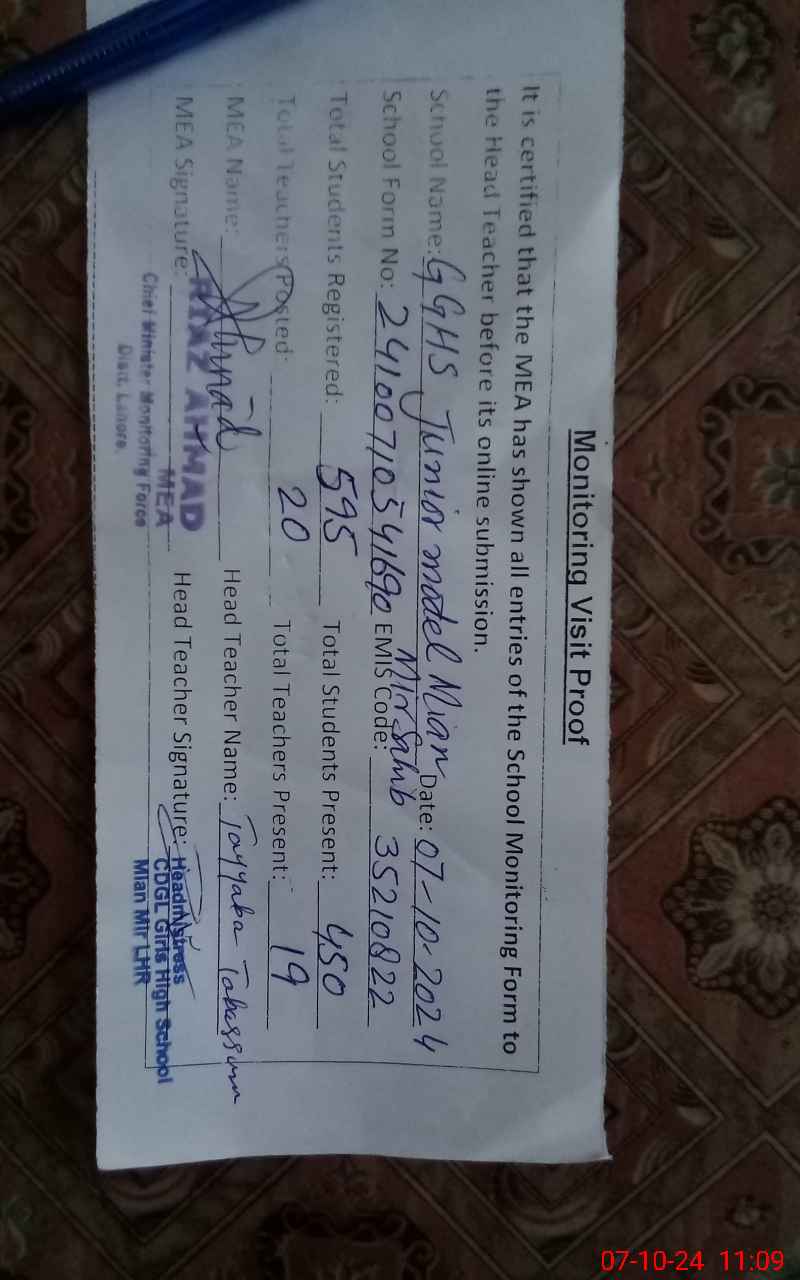 Monitoring Visit Proof
It is certified that the MEA has shown all entries of the School Monitoring Form to
the Head Teacher before its online submission.
School Name: GGHS Junior model Mian Date: 07-10-2024
Mir Sahib
School Form No: 2410071054 1690 EMIS Code: 35210822
Total Students Registered: 595 Total Students Present: 450
Total Teachers Posted: 20 Total Teachers Present: 19
MEA Name: Head Teacher Name: Tayyaba Tabassum
MEA Signature: RIAZ AHMAD Head Teacher Signature: Headmistress
MEA CDGL Girls High School
Chief Minister Monitoring Force Mian Mir LHR
Distt. Lahore.
07-10-24 11:09